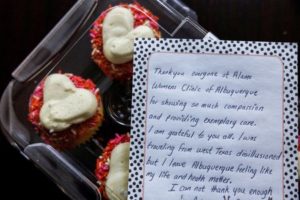 Thank you everyone at Alamo
Womens Clinic of Albuquerque
for showing so much compassion
and providing exemplary care.
I am grateful to you all. I was
traveling from west Texas disillusioned
but I leave Albuquerque feeling like
my life and health matter.
I can not thank you enough